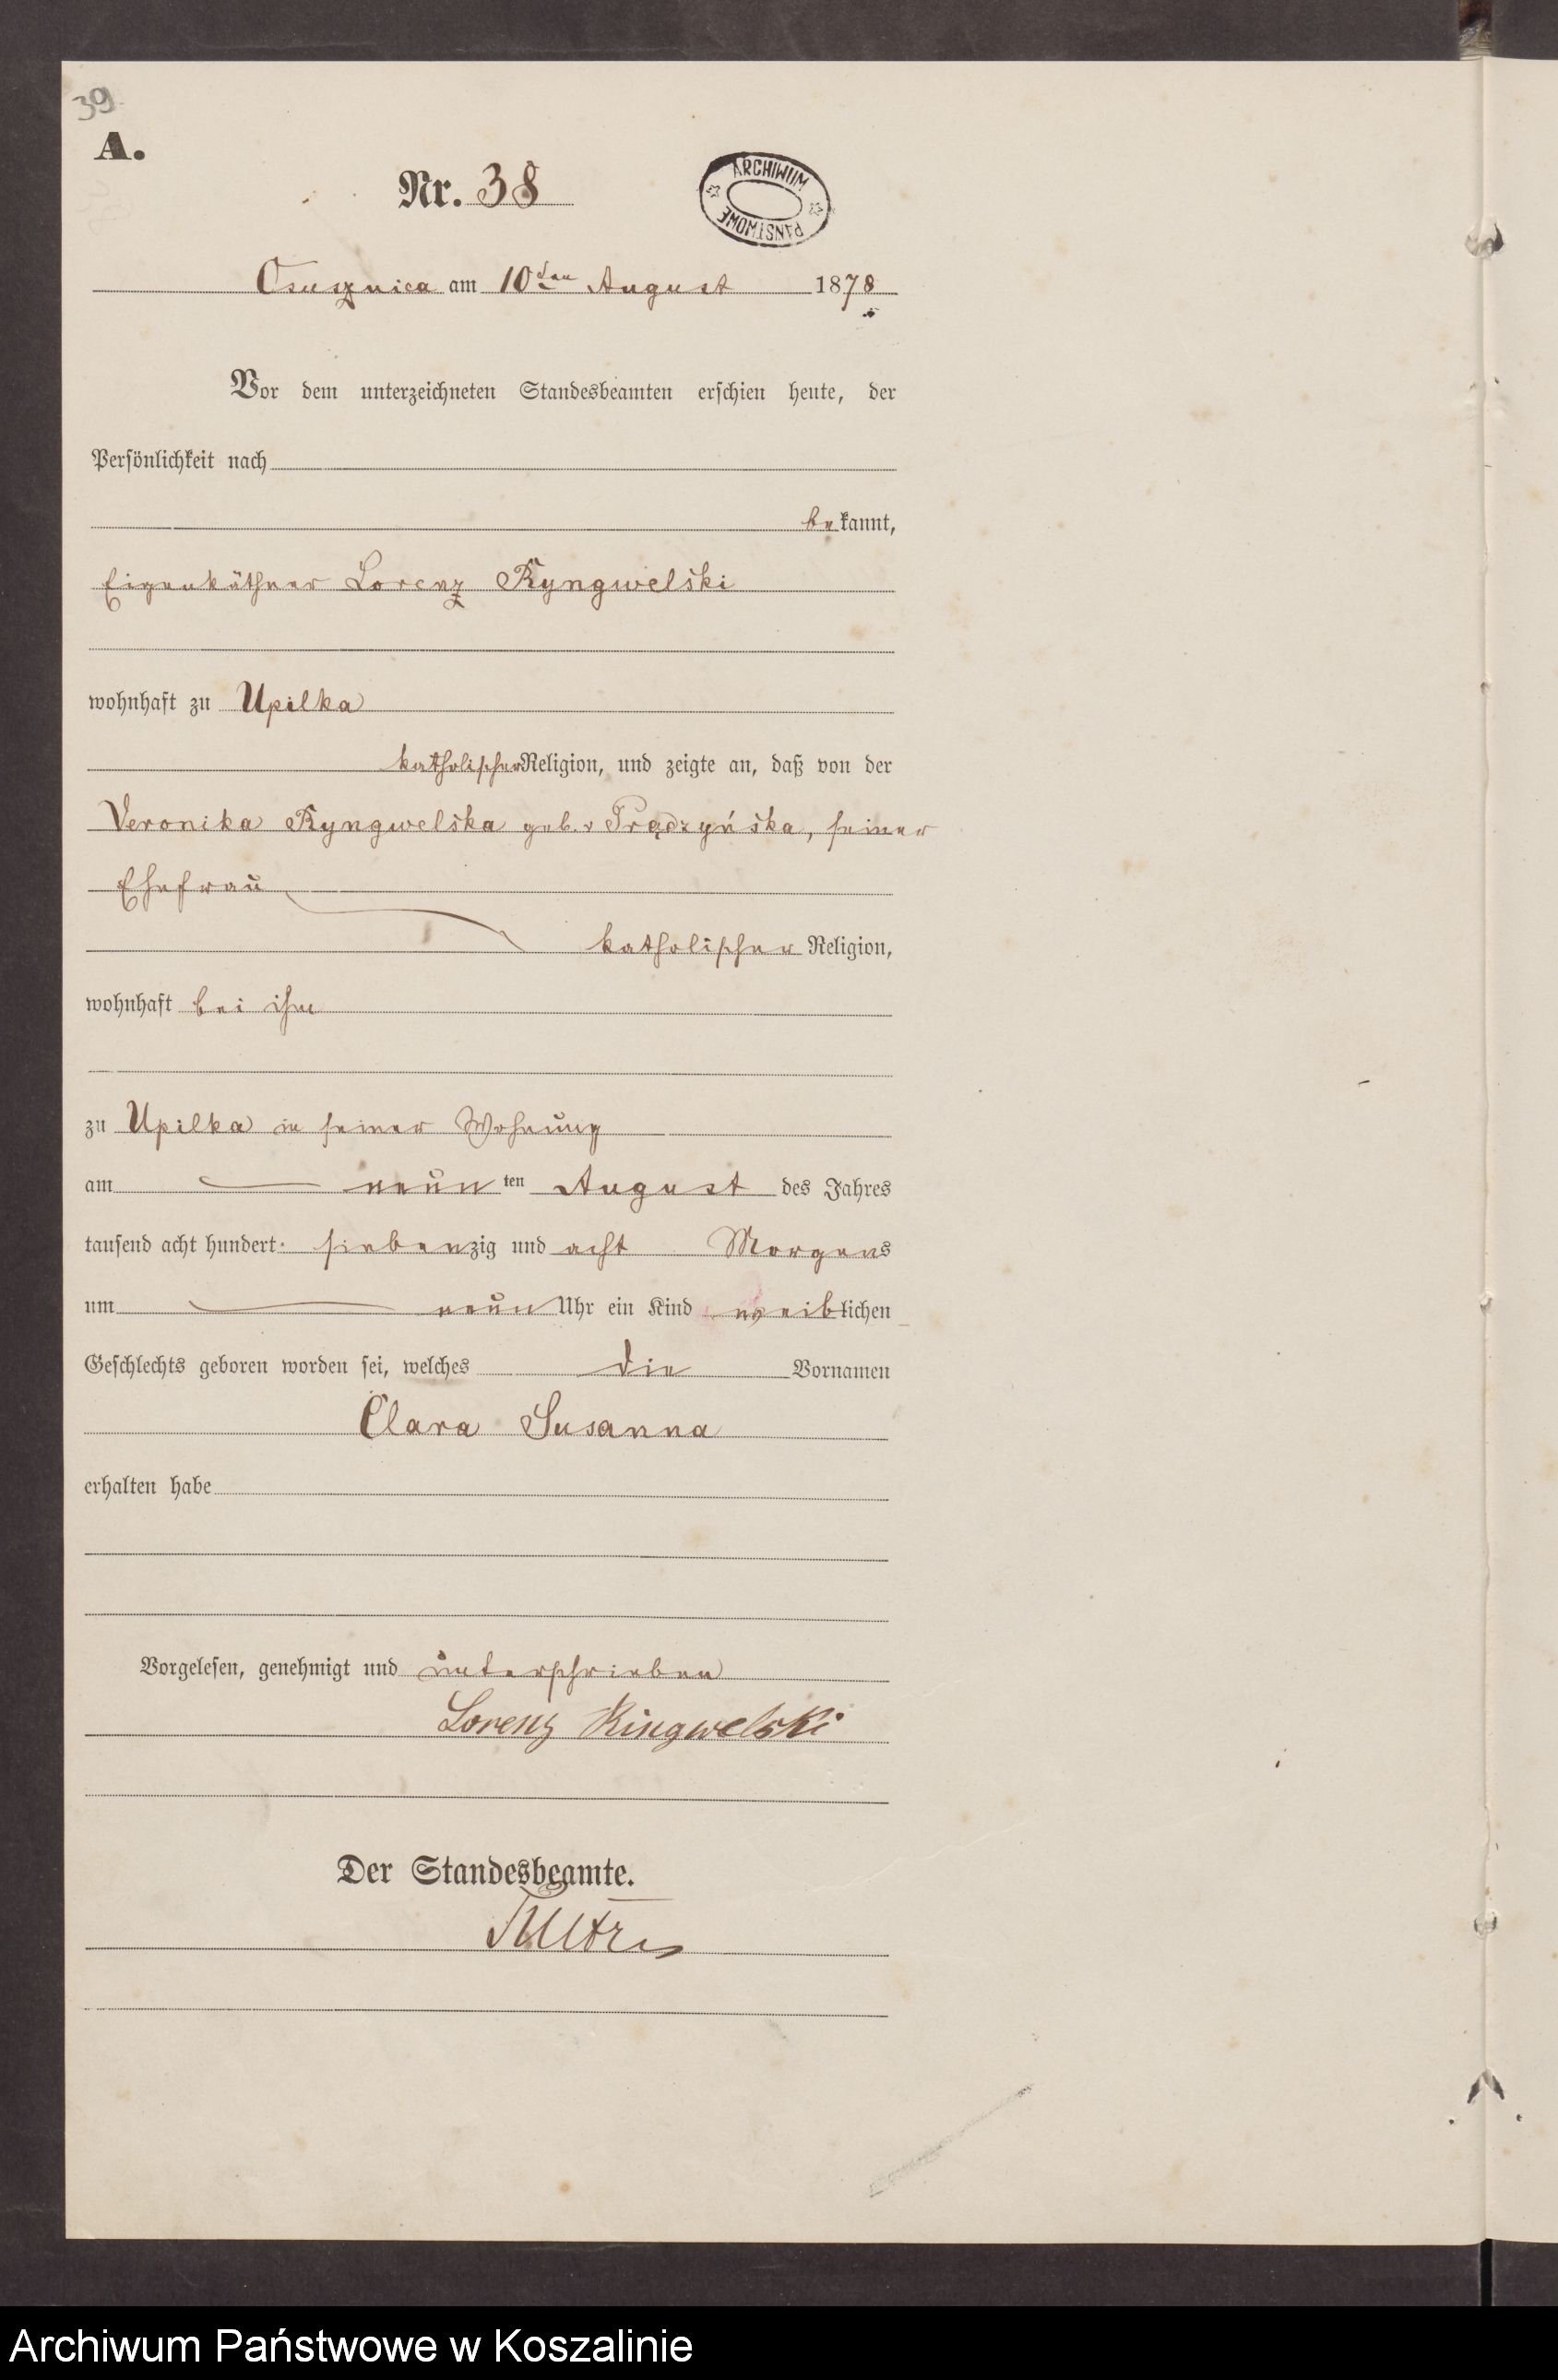 39
A.
Nr. 38
ARCHIWUM PAŃSTWOWE
Osusznica am 10ten August 1878
Vor dem unterzeichneten Standesbeamten erschien heute, der
Persönlichkeit nach
bekannt,
Eigenkäthner Lorenz Ryngwelski
wohnhaft zu Upilka
katholischer Religion, und zeigte an, daß von der
Veronika Ryngwelska geb. v Prądzyńska, seiner
Ehefrau
katholischer Religion,
wohnhaft bei ihm
zu Upilka in seiner Wohnung
am neunten August des Jahres
tausend acht hundert siebenzig und acht Morgens
um neun Uhr ein Kind weiblichen
Geschlechts geboren worden sei, welches die Vornamen
Clara Susanna
erhalten habe
Vorgelesen, genehmigt und unterschrieben
Lorenz Ringwelski
Der Standesbeamte.
Archiwum Państwowe w Koszalinie